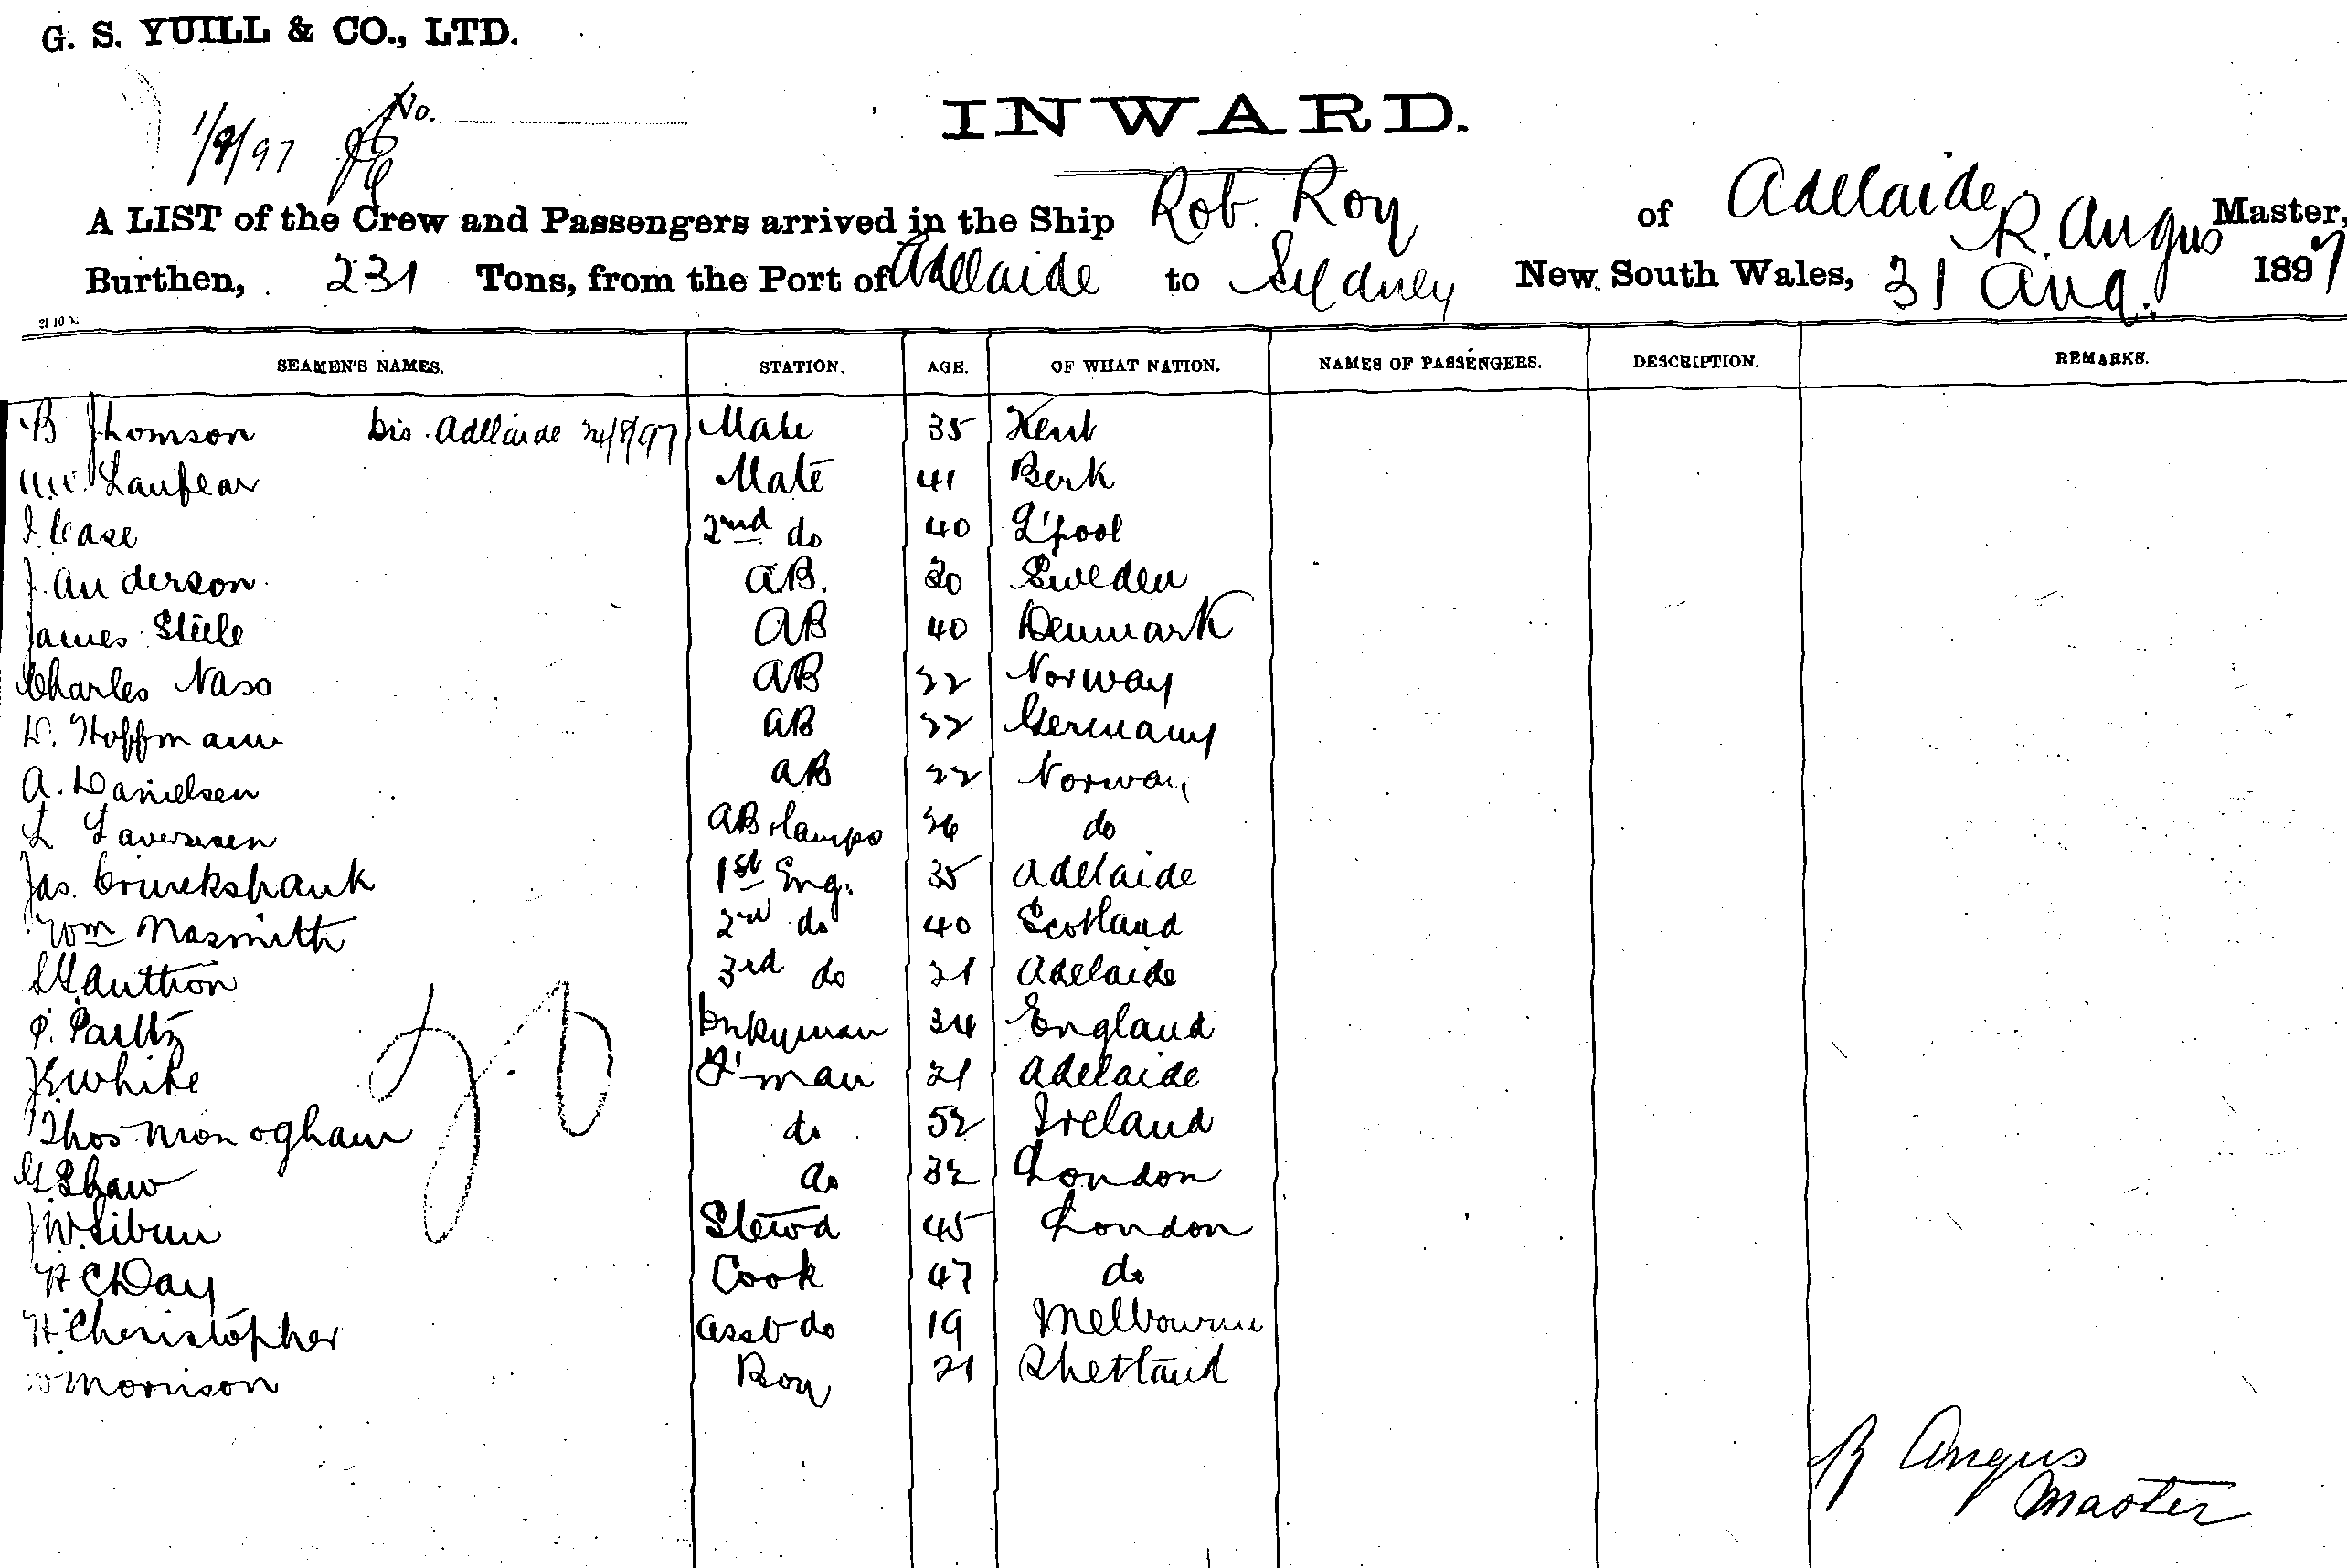 G. S. YUILL & CO., LTD.
No.
1/9/97
INWARD.
A LIST of the Crew and Passengers arrived in the Ship Rob Roy of Adelaide R. Angus Master,
Burthen, 231 Tons, from the Port of Adelaide to Sydney New South Wales, 31 Aug. 1897
SEAMEN'S NAMES. STATION. AGE. OF WHAT NATION. NAMES OF PASSENGERS. DESCRIPTION. REMARKS.
B Thomson Dis. Adelaide 24/8/97 Mate 35 Kent
Mate 41 Berk
Case 2nd do 40 L'pool
J. Anderson AB. Sweden
James Steele AB 40 Denmark
Charles Nass AB 22 Norway
Hoffmann AB 22 Germany
A. Danielsen AB 22 Norway
L AB & lamps do
Jas. Cruickshank 1st Eng. 35 Adelaide
Wm Nasmith 2nd do 40 Scotland
3rd do 21 Adelaide
P. Dnkyman 34 England
J.E. White F'man 21 Adelaide
Thos Monoghan do 52 Ireland
Shaw do 32 London
J.W. Stewd 45 London
H C Day Cook 47 do
H. Cheristopher Asst do 19 Melbourne
Morrison Boy 21 Shetland
R Angus
Master